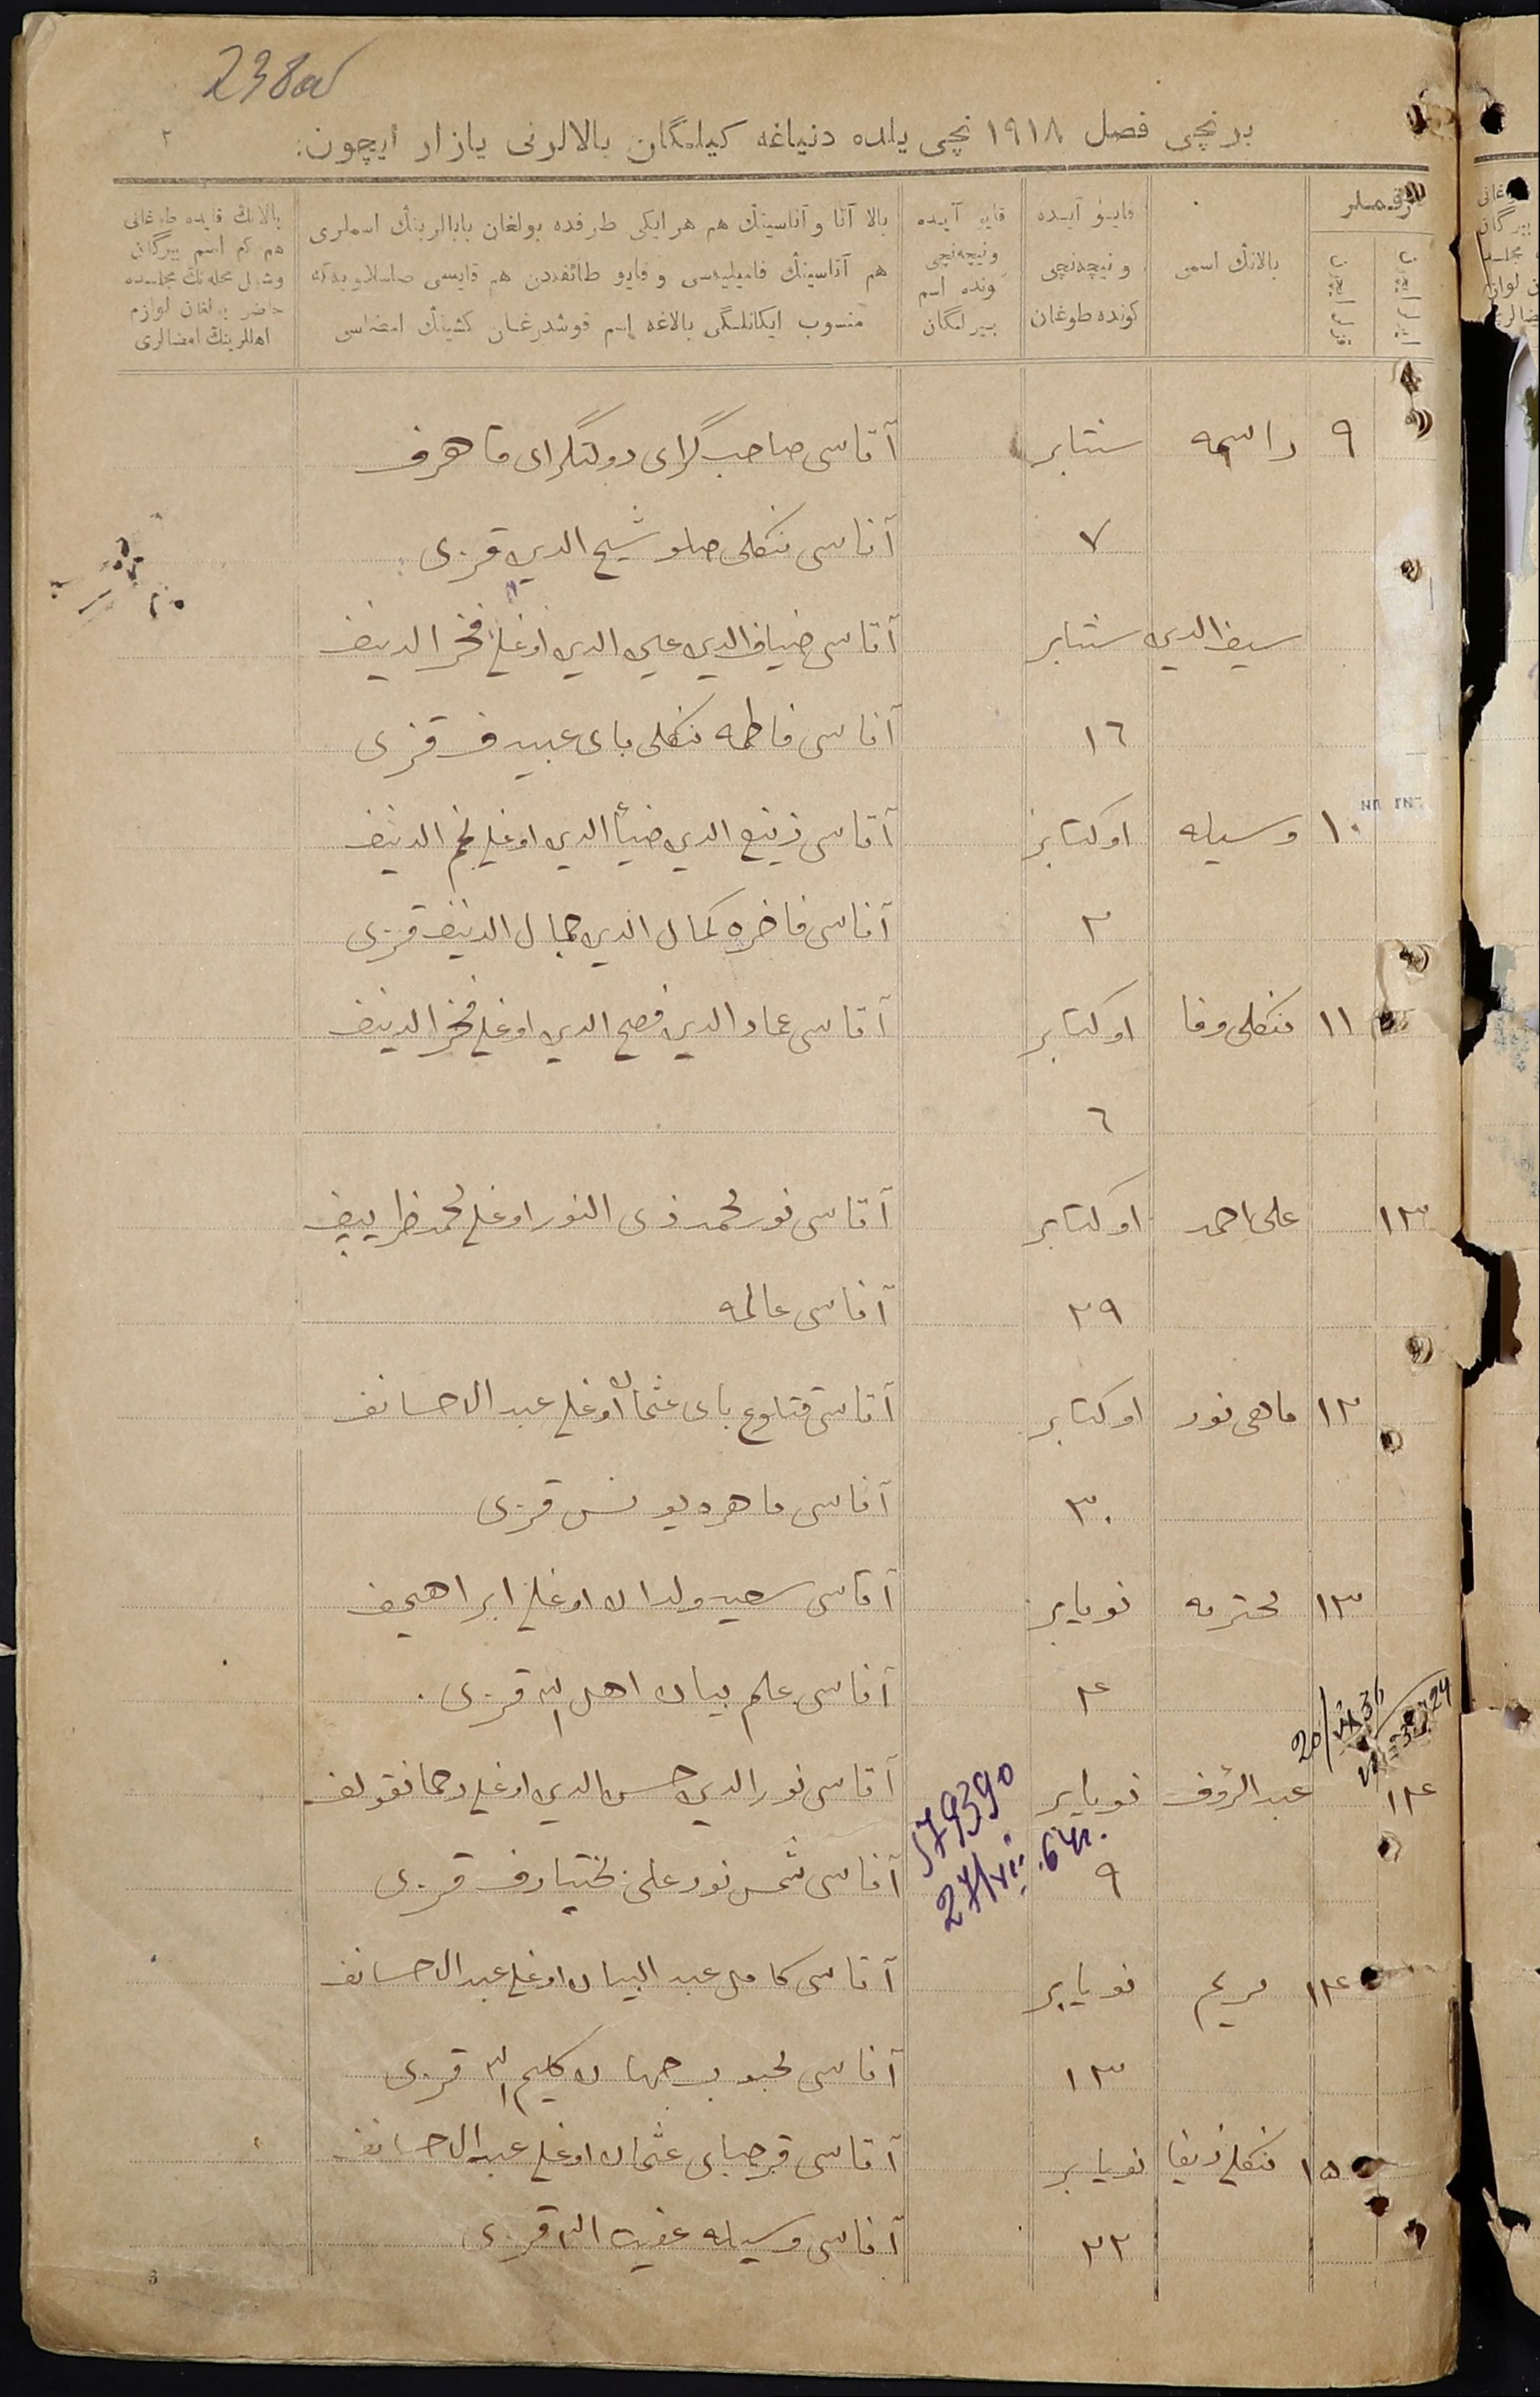 238а
برنچی فصل ١٩١٨ نچی یلده دنیاغه کیلمگان بالالرنی یازار ایچون.
٢
رقملر
بالانڭ اسمی
قایو آیده
و نیچه‌نچی
کونده طوغان
قایو آیده
و نیچه‌نچی
کونده اسم
بیرلگان
بالا آتا و آناسینڭ هم هر ایکی طرفده بولغان بابالرینڭ اسملری
هم آتاسینڭ فامیلیه‌سی و قایو طائفه‌دن هم قایسی
منسوب ایکانلگی بالاغه اسم قوشدرغان کشینڭ امضاسی
بالانڭ قایده طوغانی
هم کم اسم بیرگان
حاضر بولغان لوازم
اهللرینڭ امضالری
٩ راسمه سنتابر آتاسی صاحب گرای دولتگرای ماهرف
٧ آناسی منکلی صلو شیخ الدین قزی
سیف الدین سنتابر آتاسی ضیاف الدین محی الدین اوغلی فخر الدینف
١٦ آناسی فاطمه منکلی بای عبیدف قزی
١٠ وسیله اوکتابر آتاسی رفیع الدین ضیأ الدین اوغلی نجم الدینف
٢ آناسی فاخره کمال الدین جمال الدینف قزی
١١ منکلی وفا اوکتابر آتاسی عماد الدین فصح الدین اوغلی فخر الدینف
٦
١٣ علی احمد اوکتابر آتاسی نور محمد ذی النور اوغلی محمد
٢٩ آناسی عالمه
١٢ ماهی نور اوکتابر آتاسی قتلوغ بای عثمان اوغلی عبد الاحسانف
٣٠ آناسی ماهره یونس قزی
١٣ محترمه نویابر آتاسی سعید ولدان اوغلی ابراهیمف
٤ آناسی علم بیان اهل الله قزی.
20/VI 36
١٤ عبد الرؤف نویابر آتاسی نور الدین حسن الدین اوغلی رحمانقولف
579390
27/VII. 64г.
٩ آناسی شمس نور علی بختیارف قزی
١٤ مریم نویابر آتاسی کامل عبد البیان اوغلی عبد الاحسانف
١٣ آناسی محبوب جهان کلیم الله قزی
١٥ منکلی زیفا نویابر آتاسی قرصبای عثمان اوغلی عبد الاحسانف
٢٢ آناسی وسیله قزی